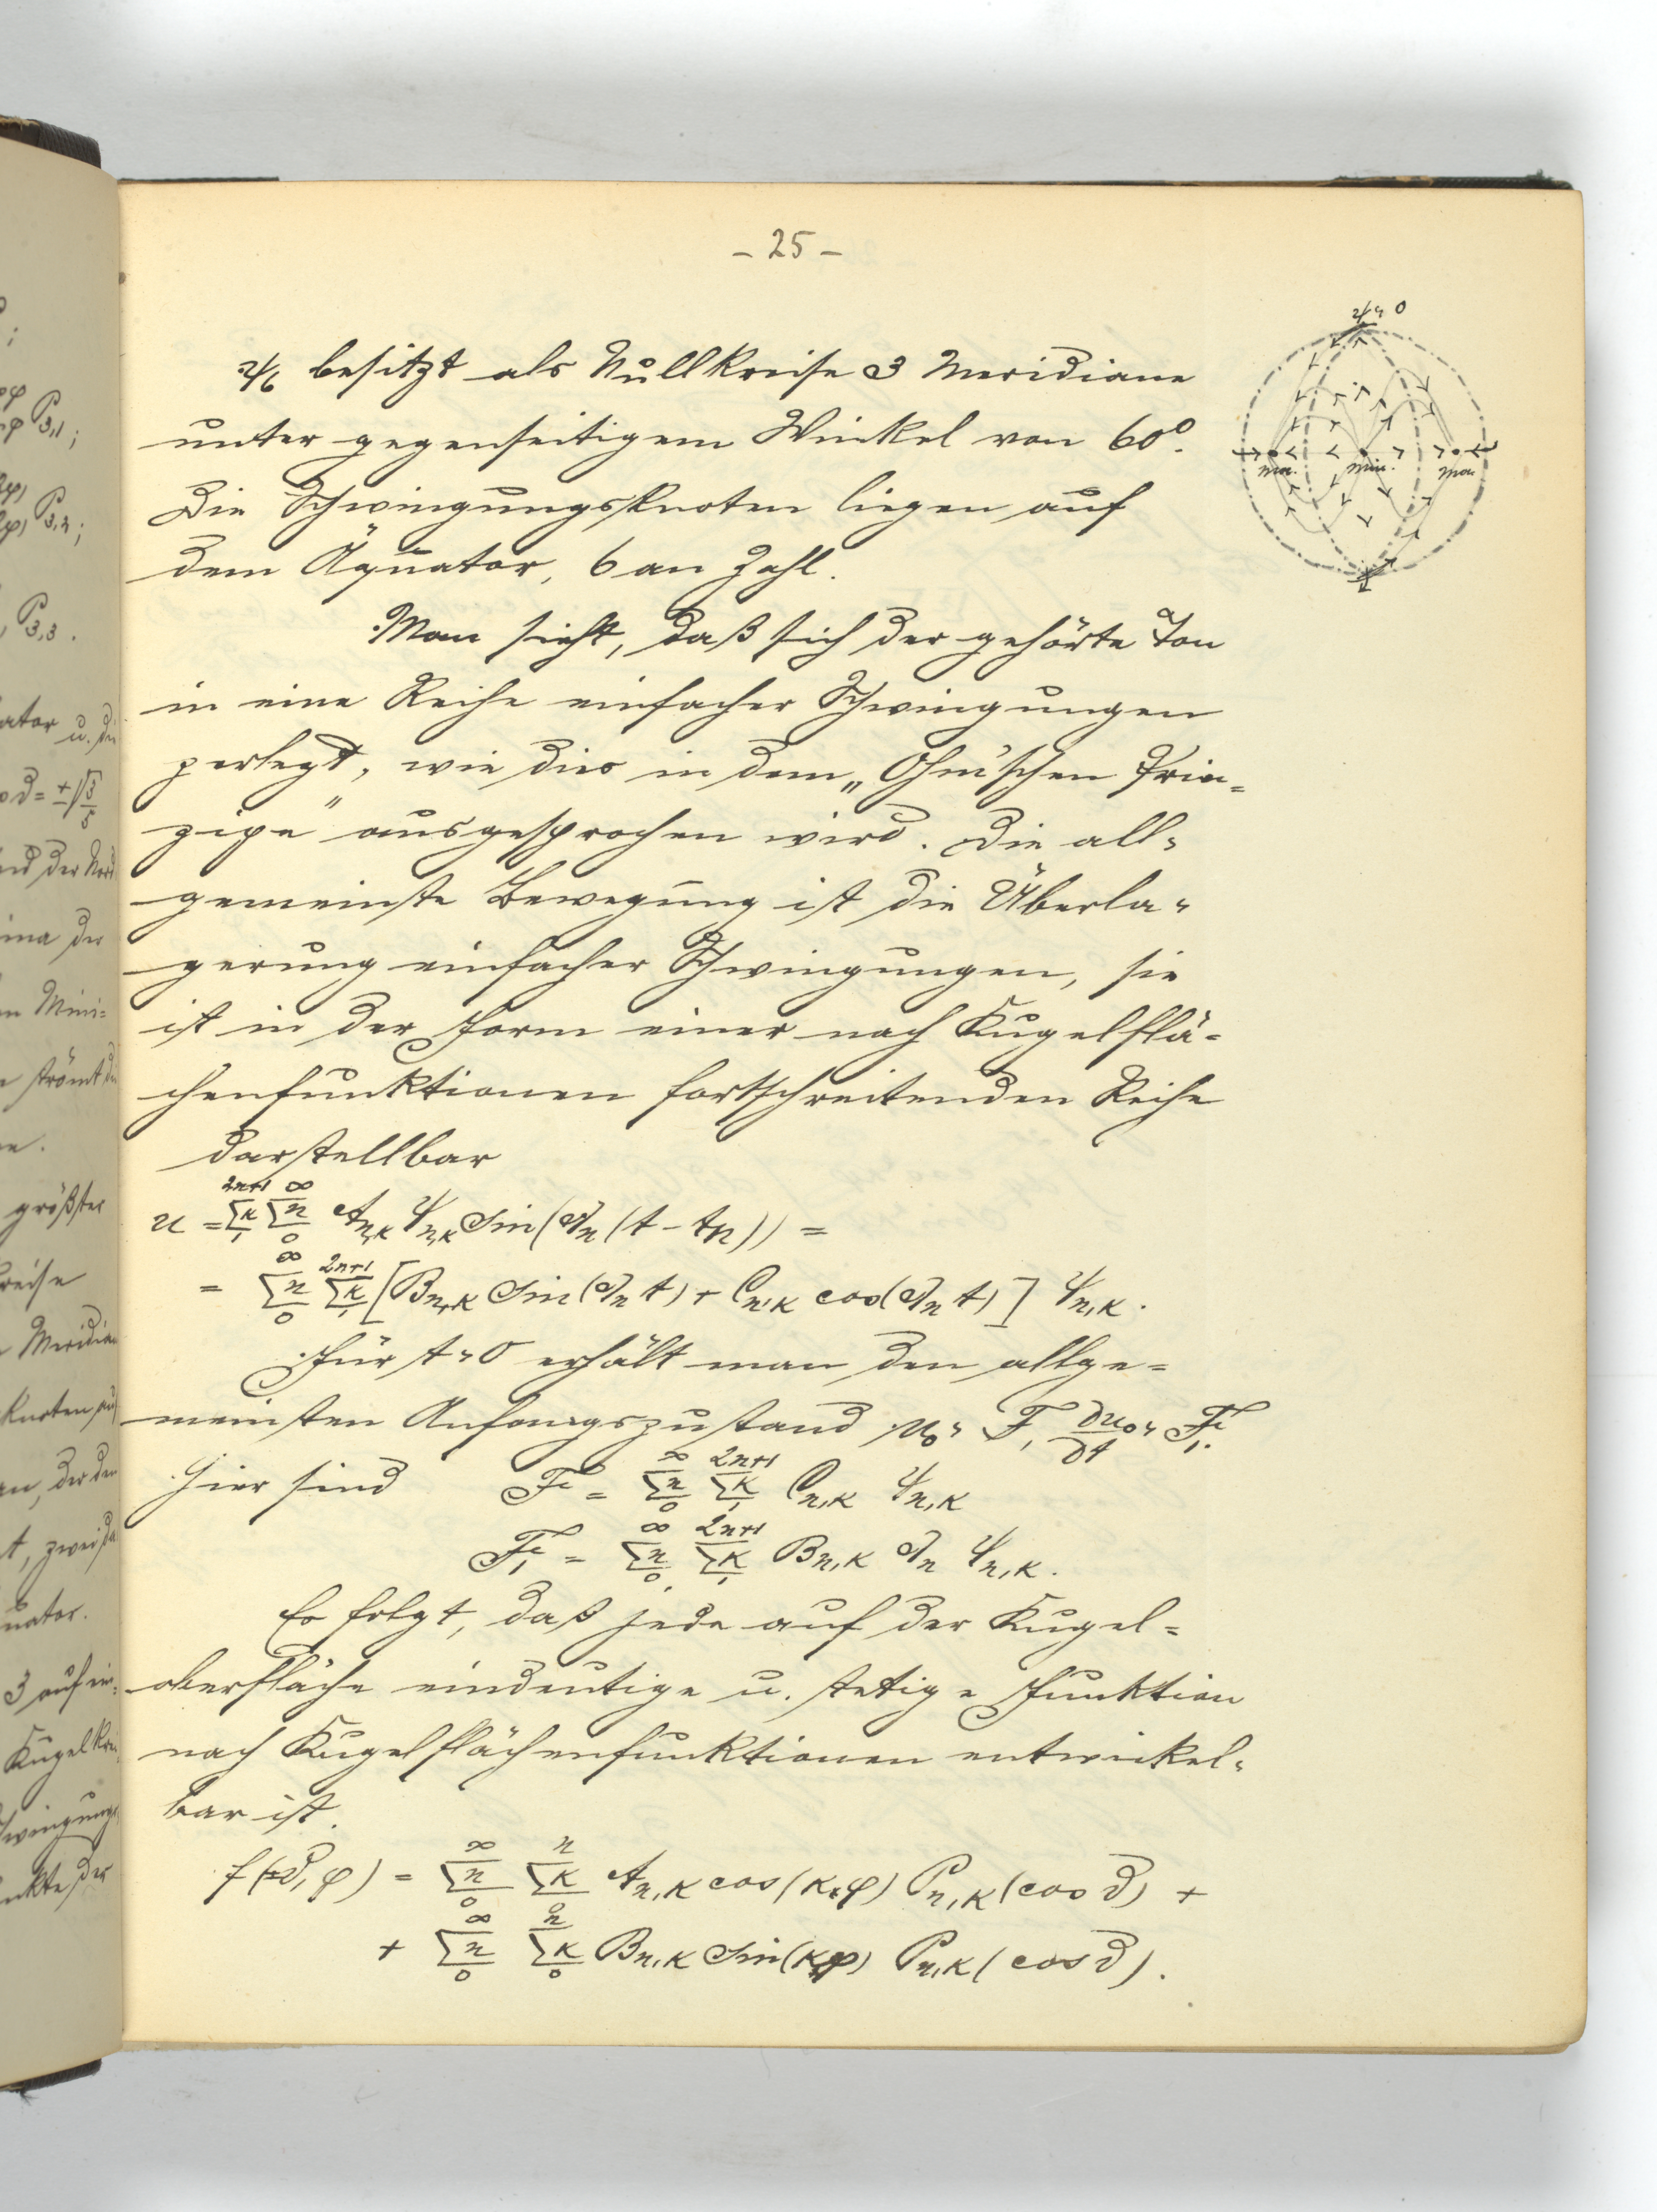 – 25 –
ψ₆ besitzt als Nullkreise 3 Meridiane
unter gegenseitigem Winkel von 60°.
Die Schwingungsknoten liegen auf
dem Äquator, 6 an Zahl.
Man sieht, daß sich der gehörte Ton
in eine Reihe einfacher Schwingungen
zerlegt, wie dies in dem „Ohm'schen Prin=
zipe" ausgesprochen wird. Die all=
gemeinste Bewegung ist die Überla=
gerung einfacher Schwingungen, sie
ist in der Form einer nach Kugelflä=
chenfunktionen fortschreitenden Reihe
darstellbar
u = Σκ₁²ⁿ⁺¹ Σn₀^∞ A_{n,κ} ψ_{n,κ} sin(λ_n (t – t_n)) =
= Σn₀^∞ Σκ₁²ⁿ⁺¹ [B_{n,κ} sin(λ_n t) + C_{n,κ} cos(λ_n t)] ψ_{n,κ}.
Für t = 0 erhält man den allge=
meinsten Anfangszustand u₀ = F, ∂u₀/∂t = F₁.
Hier sind F = Σn₀^∞ Σκ₁²ⁿ⁺¹ C_{n,κ} ψ_{n,κ}
F₁ = Σn₀^∞ Σκ₁²ⁿ⁺¹ B_{n,κ} λ_n ψ_{n,κ}.
Es folgt, daß jede auf der Kugel=
oberfläche eindeutige u. stetige Funktion
nach Kugelflächenfunktionen entwickel=
bar ist.
f(ϑ, φ) = Σn₀^∞ Σκ₀ⁿ A_{n,κ} cos(κφ) P_{n,κ}(cos ϑ) +
+ Σn₀^∞ Σκ₀ⁿ B_{n,κ} sin(κφ) P_{n,κ}(cos ϑ).
ψ = 0
Max. Min. Max
P₃,₁;
P₃,₂;
P₃,₃.
größter
Meridian